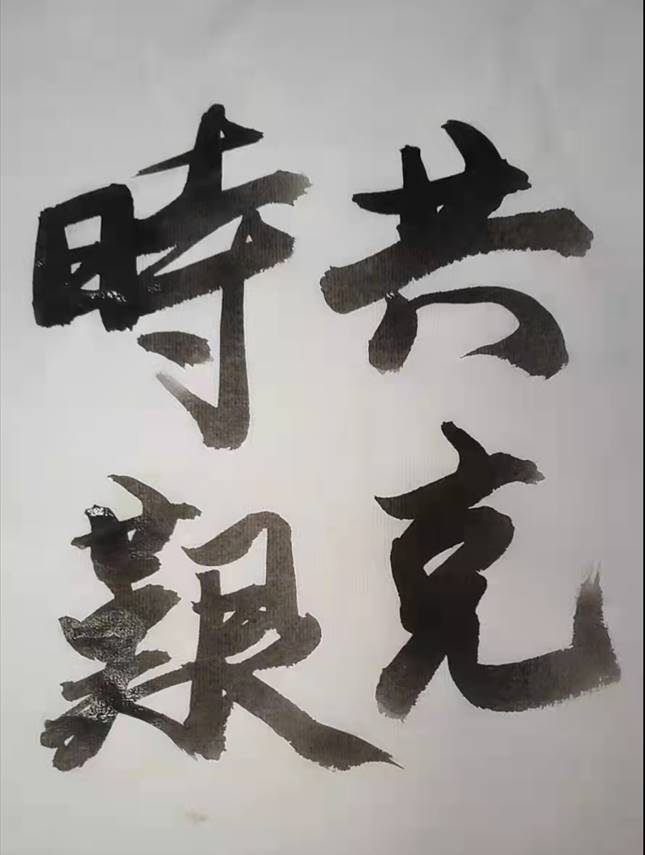 共克
時艱